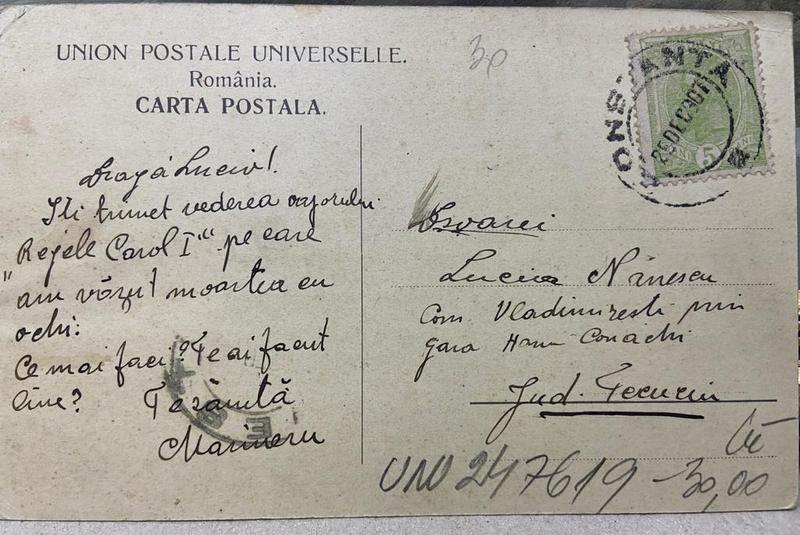 UNION POSTALE UNIVERSELLE.
România.
CARTA POSTALA.
30
CONSTANTA
29DEC907
5
Dragă Luciv!
Iți trimet vederea vaporului
"Regele Carol I" pe care
am văzut moartea cu
ochi.
Ce mai faci? Te ai facut
bine? Te sărută
Marineru
Lucica Nănescu
Com. Vladimirești prin
gara Hanu Conachi
Jud. Tecuciu
UNV 247619 -30,00